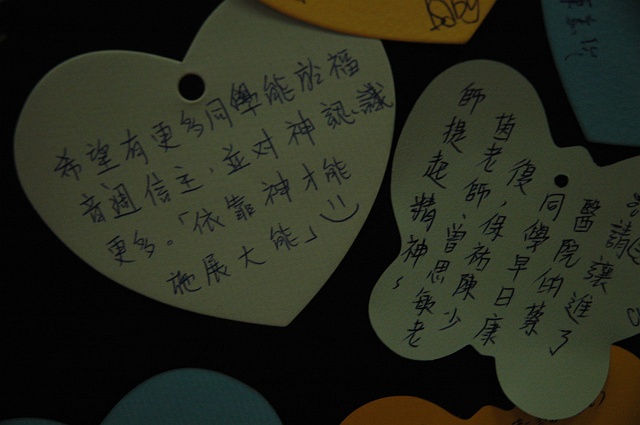 希望有更多同學能於福
音週信主,並对神認識
更多。「依靠神才能
施展大能」
請
讓進了
醫院的蔡
同學早日康
復,保祐陳少
茵老師、曾思敏老
師提起精神~